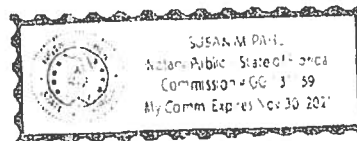 SUSAN M.
Notary Public State of Florida
Commission # GG
My Comm. Expires Nov 30, 2021